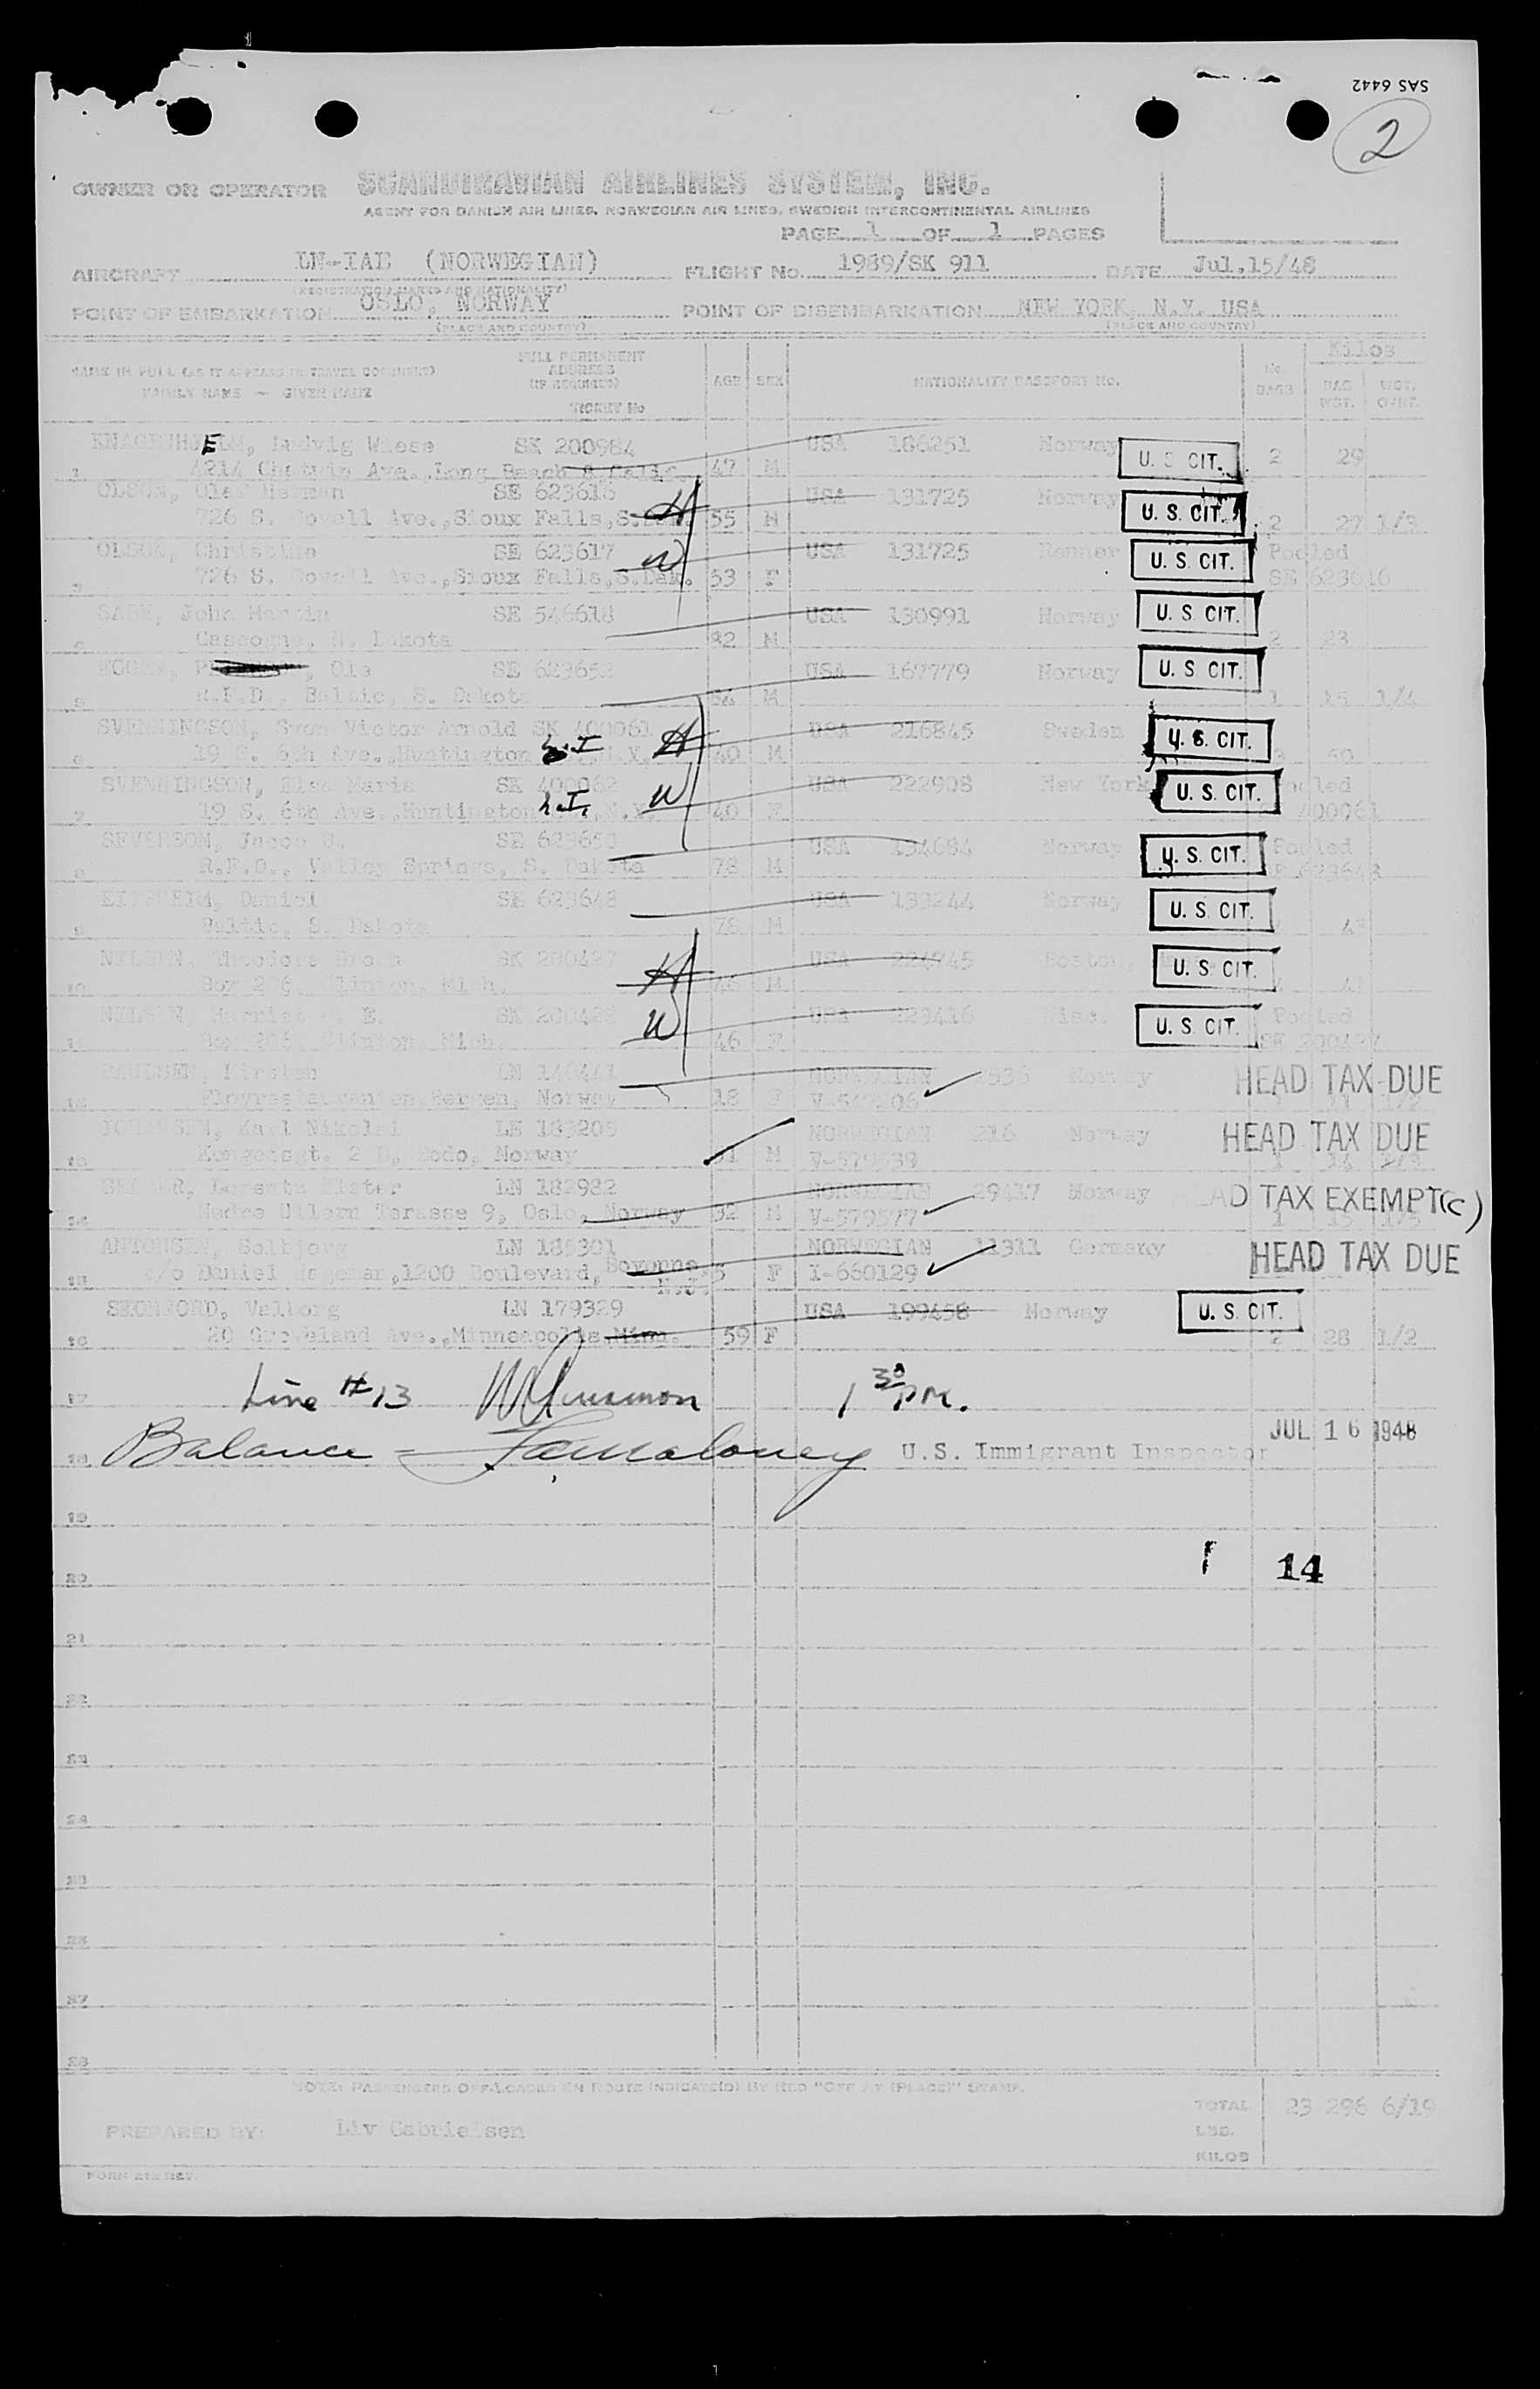 SAS 6442
2
OWNER OR OPERATOR SCANDINAVIAN AIRLINES SYSTEM, INC.
AGENT FOR DANISH AIR LINES, NORWEGIAN AIR LINES, SWEDISH INTERCONTINENTAL AIRLINES
PAGE 1 OF 1 PAGES
AIRCRAFT LN-IAE (NORWEGIAN) FLIGHT No. 1989/SK 911 DATE Jul.15/48
(REGISTRATION MARKS AND NATIONALITY)
POINT OF EMBARKATION OSLO, NORWAY POINT OF DISEMBARKATION NEW YORK, N.Y. USA
(PLACE AND COUNTRY) (PLACE AND COUNTRY)
NAME IN FULL (AS IT APPEARS IN TRAVEL DOCUMENT) FULL PERMANENT ADDRESS (IF REQUIRED) AGE SEX NATIONALITY PASSPORT No. No. BAGS Kilos
FAMILY NAME — GIVEN NAME TICKET No BAG WGT. WGT. O/HT.
Ludvig Wiese SK 200984 USA 186251 Norway U. S. CIT. 2 29
1 4214 Ave., Long Beach 8 Calif. 47 M
OLSON, Ole Herman SE 623616 H USA 131725 Norway U. S. CIT.
726 S. Covell Ave., Sioux Falls, S. 55 M 2 27 1/3
OLSON, Christine SE 623617 W USA 131725 Renner U. S. CIT. Pooled
3 726 S. Covell Ave., Sioux Falls, S.Dak. 53 F SE 623616
John Martin SE 546618 USA 130991 Norway U. S. CIT.
4 Gascogne, N. Dakota M 2 23
Ole SE 623652 USA 167779 Norway U. S. CIT.
5 R.F.D., Baltic, S. Dakota M 1 15 1/4
SVENNINGSON, Sven Victor Arnold SK 400061 H USA 216845 Sweden U. S. CIT.
6 19 S. 6th Ave., Huntington L.I. N.Y. 40 M 3 50
SVENNINGSON, Elsa Maria SK 400062 W USA 222908 New York U. S. CIT. Pooled
7 19 S. 6th Ave., Huntington L.I. N.Y. 40 F 400061
SEVERSON, Jacob B. SE 623650 USA 134684 Norway U. S. CIT. Pooled
8 R.F.D., Valley Springs, S. Dakota 78 M SE 623648
Daniel SE 623648 USA 133244 Norway U. S. CIT.
9 Baltic, S. Dakota 78 M 43
NILSEN, Theodore SK 200427 H USA 224745 Boston, U. S. CIT.
10 Box 206, Clinton, Mich. 46 M
NILSEN, Harriet E. SK 200428 W USA 223416 Wisc. U. S. CIT. Pooled
11 Box 206, Clinton, Mich. 46 F SK 200427
PAULSEN, Kirsten LN NORWEGIAN 536 Norway HEAD TAX DUE
12 Bergen, Norway 18 F
Karl Nikolai LN 183205 NORWEGIAN 216 Norway HEAD TAX DUE
13 Kongensgt. 2 B, Bodo, Norway M V-579539
LN 182982 NORWEGIAN 29417 Norway HEAD TAX EXEMPT (C)
14 Nedre Ullern Terasse 9, Oslo, Norway 32 M V-579577
ANTONSEN, Solbjorg LN 185301 NORWEGIAN 11311 Germany HEAD TAX DUE
15 c/o Daniel 1200 Boulevard, Bayonne, N.J. 5 F I-660129
Valborg LN 179329 USA 199458 Norway U. S. CIT.
16 20 Groveland Ave., Minneapolis Minn. 59 F 2 28 1/2
17 Line #13 1 30 PM.
JUL 16 1948
18 Balance — U.S. Immigrant Inspector
19
20 14
21
22
23
24
25
26
27
28
NOTE: PASSENGERS OFF-LOADED EN ROUTE INDICATE(D) BY RED "OFF AT (PLACE)" STAMP.
TOTAL 23 296 6/19
PREPARED BY: Liv Gabrielsen LBS.
KILOS
FORM 212 REV.